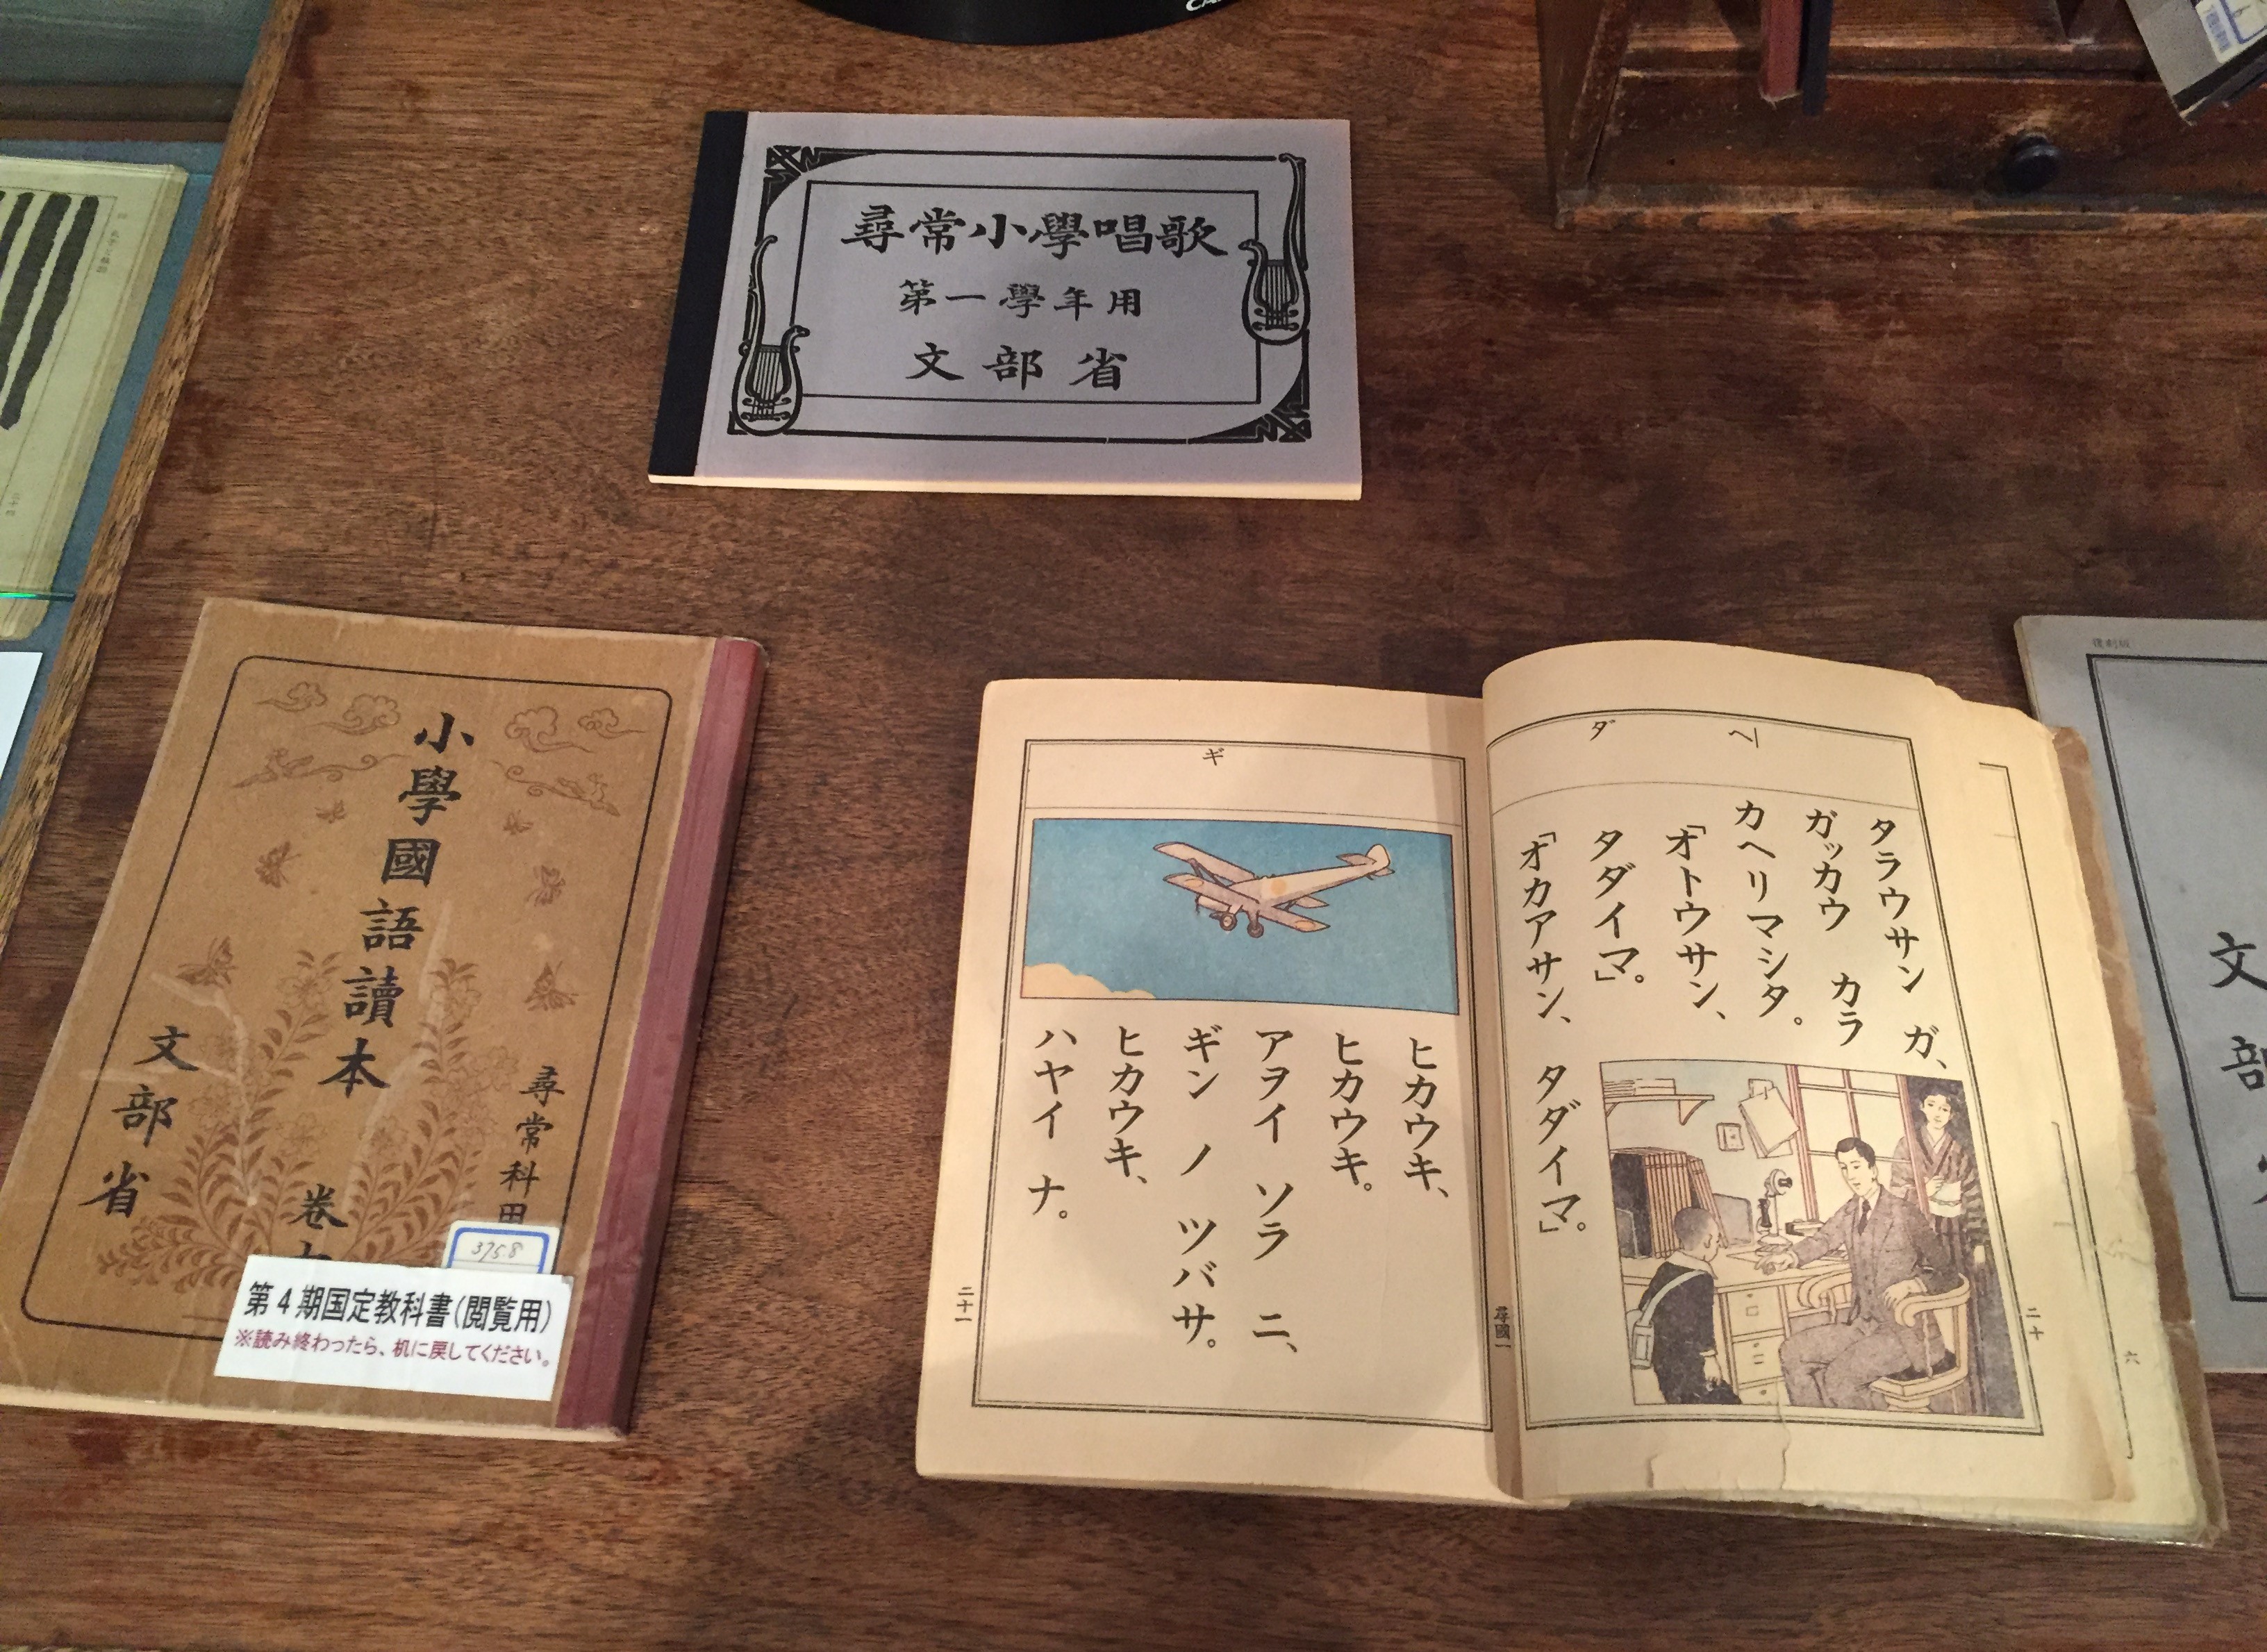 尋常小學唱歌
第一學年用
文部省
小學國語讀本
尋常科用
卷
文部省
375.8
第4期国定教科書(閲覧用)
※読み終わったら、机に戻してください。
ヘ
ダ
タラウサン ガ、
ガッカウ カラ
カヘリマシタ。
「オトウサン、
タダイマ。」
「オカアサン、タダイマ。」
二十
尋國一
ギ
ヒカウキ、
ヒカウキ。
アヲイ ソラ ニ、
ギン ノ ツバサ。
ヒカウキ、
ハヤイ ナ。
二十一
六
復刻版
文部